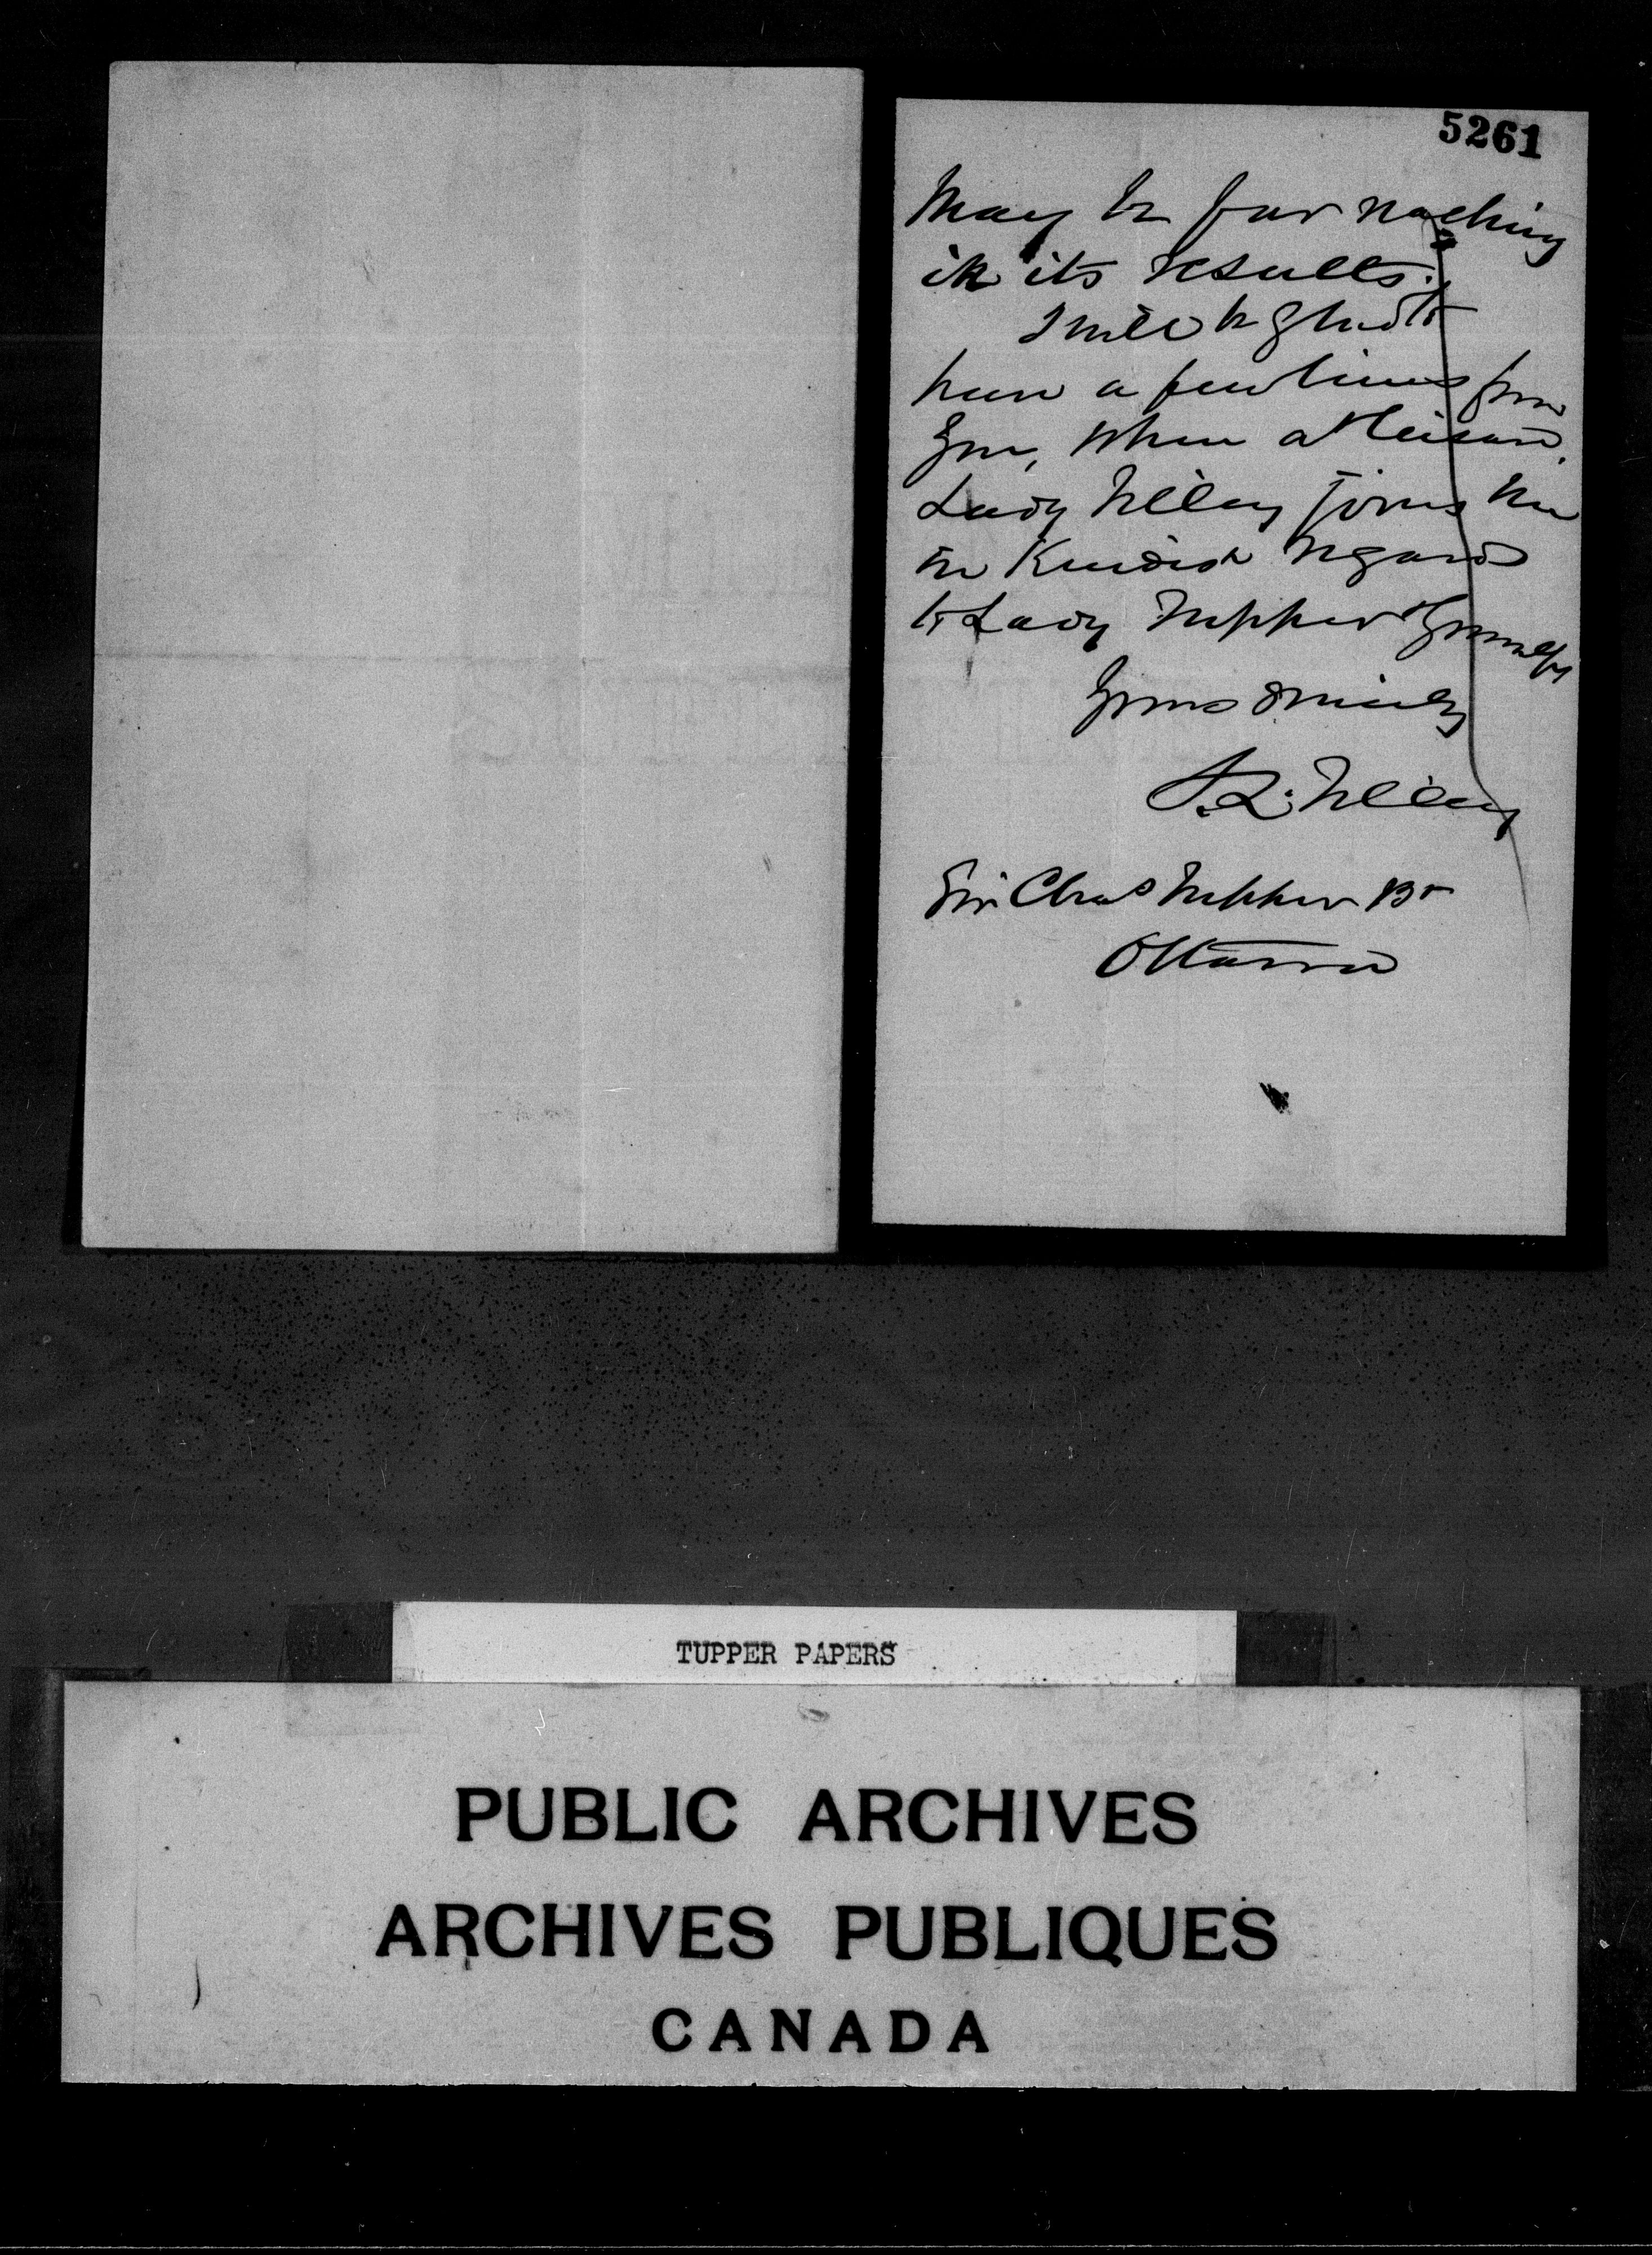 5261
May be far reaching
in its results.
I will be glad to
have a few lines from
you, when at leisure.
Lady Tilley joins me
in Kindest regards
to Lady Tupper & yourself
Yours Sincerely
S. L. Tilley
Sir Chas Tupper Bt
Ottawa
TUPPER PAPERS
PUBLIC ARCHIVES
ARCHIVES PUBLIQUES
CANADA